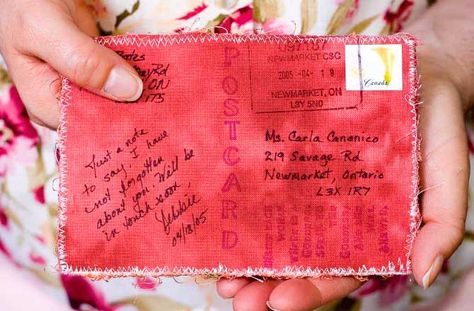 Rd
ON
POSTCARD
NEWMARKET CSC
2005 -04- 19
NEWMARKET, ON
L3Y 5N0
Canada
Just a note
to say, I have
not forgotten
about you. Will be
in touch soon,
04/18/05
Ms. Carla Cananico
219 Savage Rd
Newmarket, Ontario
L3X 1R7